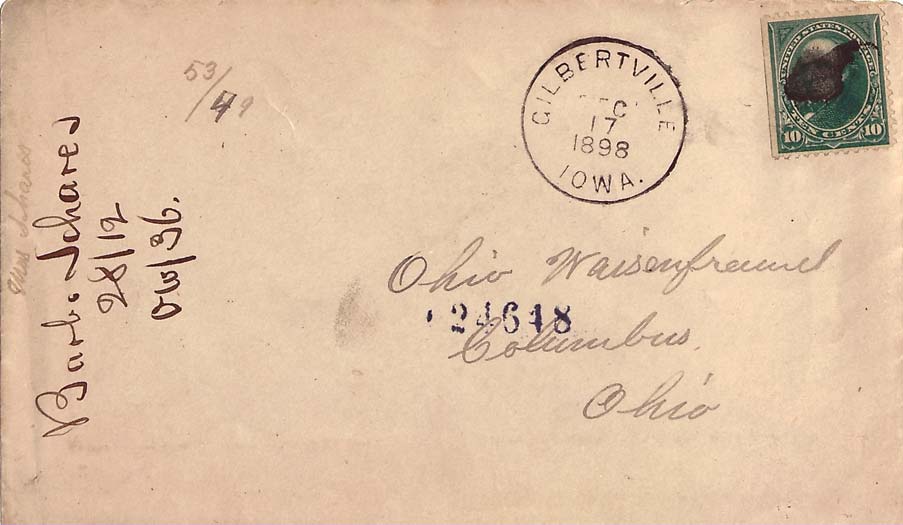 53/
49
GILBERTVILLE
17
1898
IOWA.
UNITED STATES POSTAGE
10 TEN CENTS 10
Ohio Waisenfreund
24648
Columbus,
Ohio
Barb. Schares
28/12
OW/36.